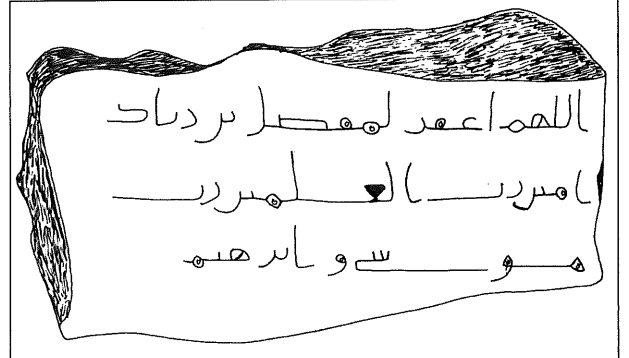 اللهم اغفر لمفضل بن زياد
امين رب العلمين رب
موسى وابرهيم